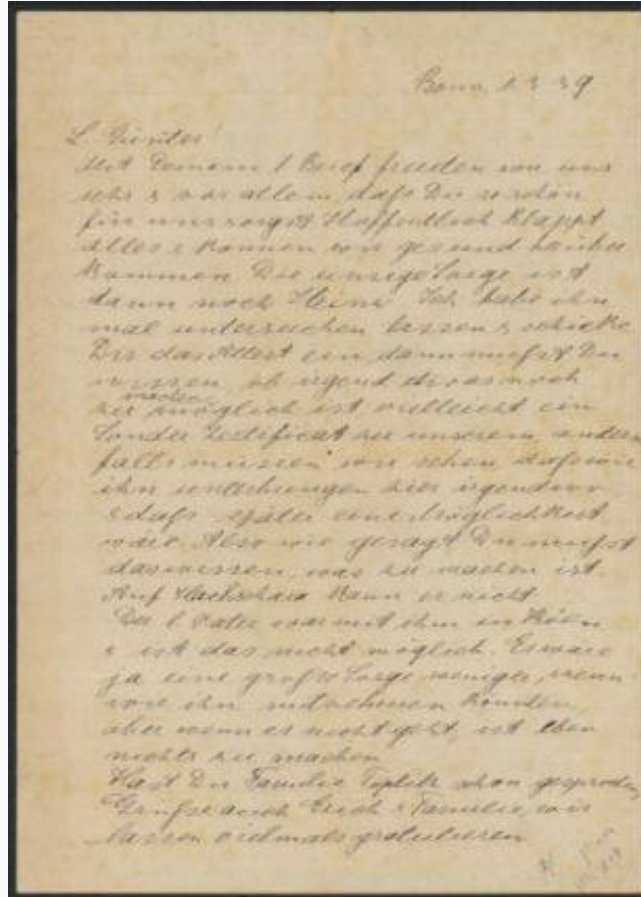 Bonn, 1.3.39
L. Günter!
Mit Deinem l. Brief freuden wir uns
sehr & vor allem, dafs Du so schön
für uns sorgst. Hoffentlich klappt
alles & können wir gesund
kommen. Die einzige Sorge ist
dann noch Heinz. Ich habe ihn
mal untersuchen lassen & schicke
Dir das Attest ein, dann mufst Du
wissen, ob irgend etwas noch
zu machen möglich ist vielleicht ein
Sonder Zertificat zu unserem, andern
falls müssen wir sehen, dafs wir
ihn unterbringen hier irgendwo
& dafs später eine Möglichkeit
wäre. Also wie gesagt Du mufst
das wissen, was zu machen ist.
Auf Hachschara kann er nicht.
Der l. Vater war mit ihm in Köln
& ist das nicht möglich. Es wäre
ja eine grofse Sorge weniger, wenn
wir ihn mitnehmen könnten,
aber wenn es nicht geht, ist eben
nichts zu machen.
Hast Du Familie Toplitz schon gesprochen,
Grüfse auch Erich & Familie, wir
lassen vielmals gratulieren.